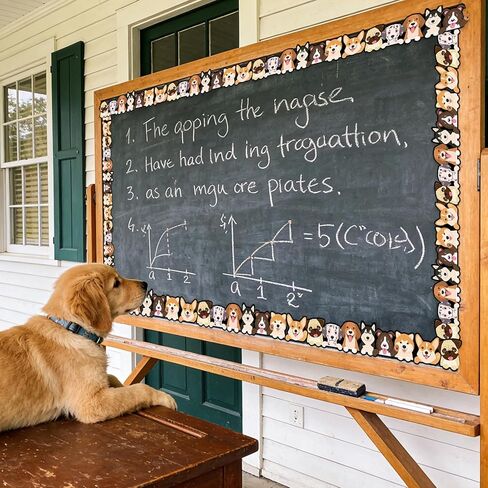 1. Fhe apping the nagise,
2. Have had lnd ing traguattion,
3. as an mgu ore plates.
a 1
a 1 2
= 5(C